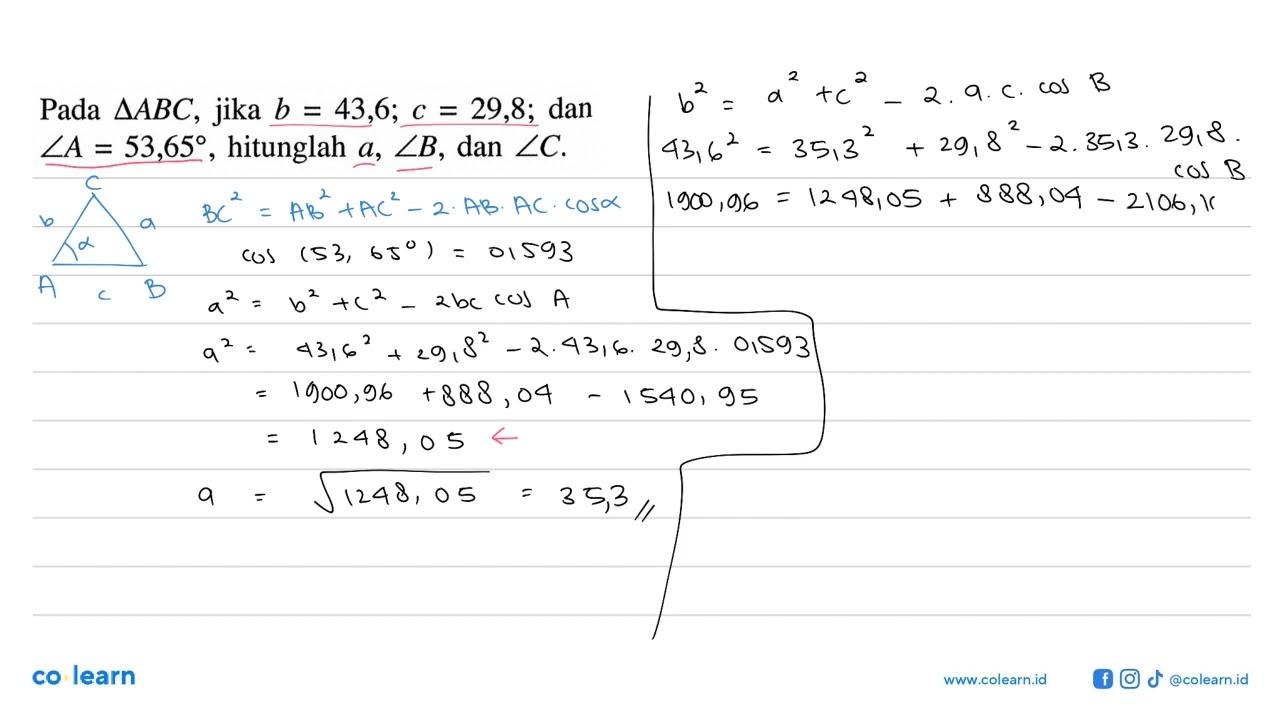 Pada ΔABC, jika b = 43,6; c = 29,8; dan
∠A = 53,65°, hitunglah a, ∠B, dan ∠C.
C
b a
α
A c B
BC² = AB² + AC² - 2. AB. AC. cos α
cos (53, 65°) = 0,593
a² = b² + c² - 2bc cos A
a² = 43,6² + 29,8² - 2. 43,6. 29,8. 0,593
= 1900,96 + 888,04 - 1540,95
= 1248,05 ←
a = √1248,05 = 35,3 //
b² = a² + c² - 2. a. c. cos B
43,6² = 35,3² + 29,8² - 2. 35,3. 29,8.
cos B
1900,96 = 1248,05 + 888,04 - 2106,1
co learn
www.colearn.id
@colearn.id